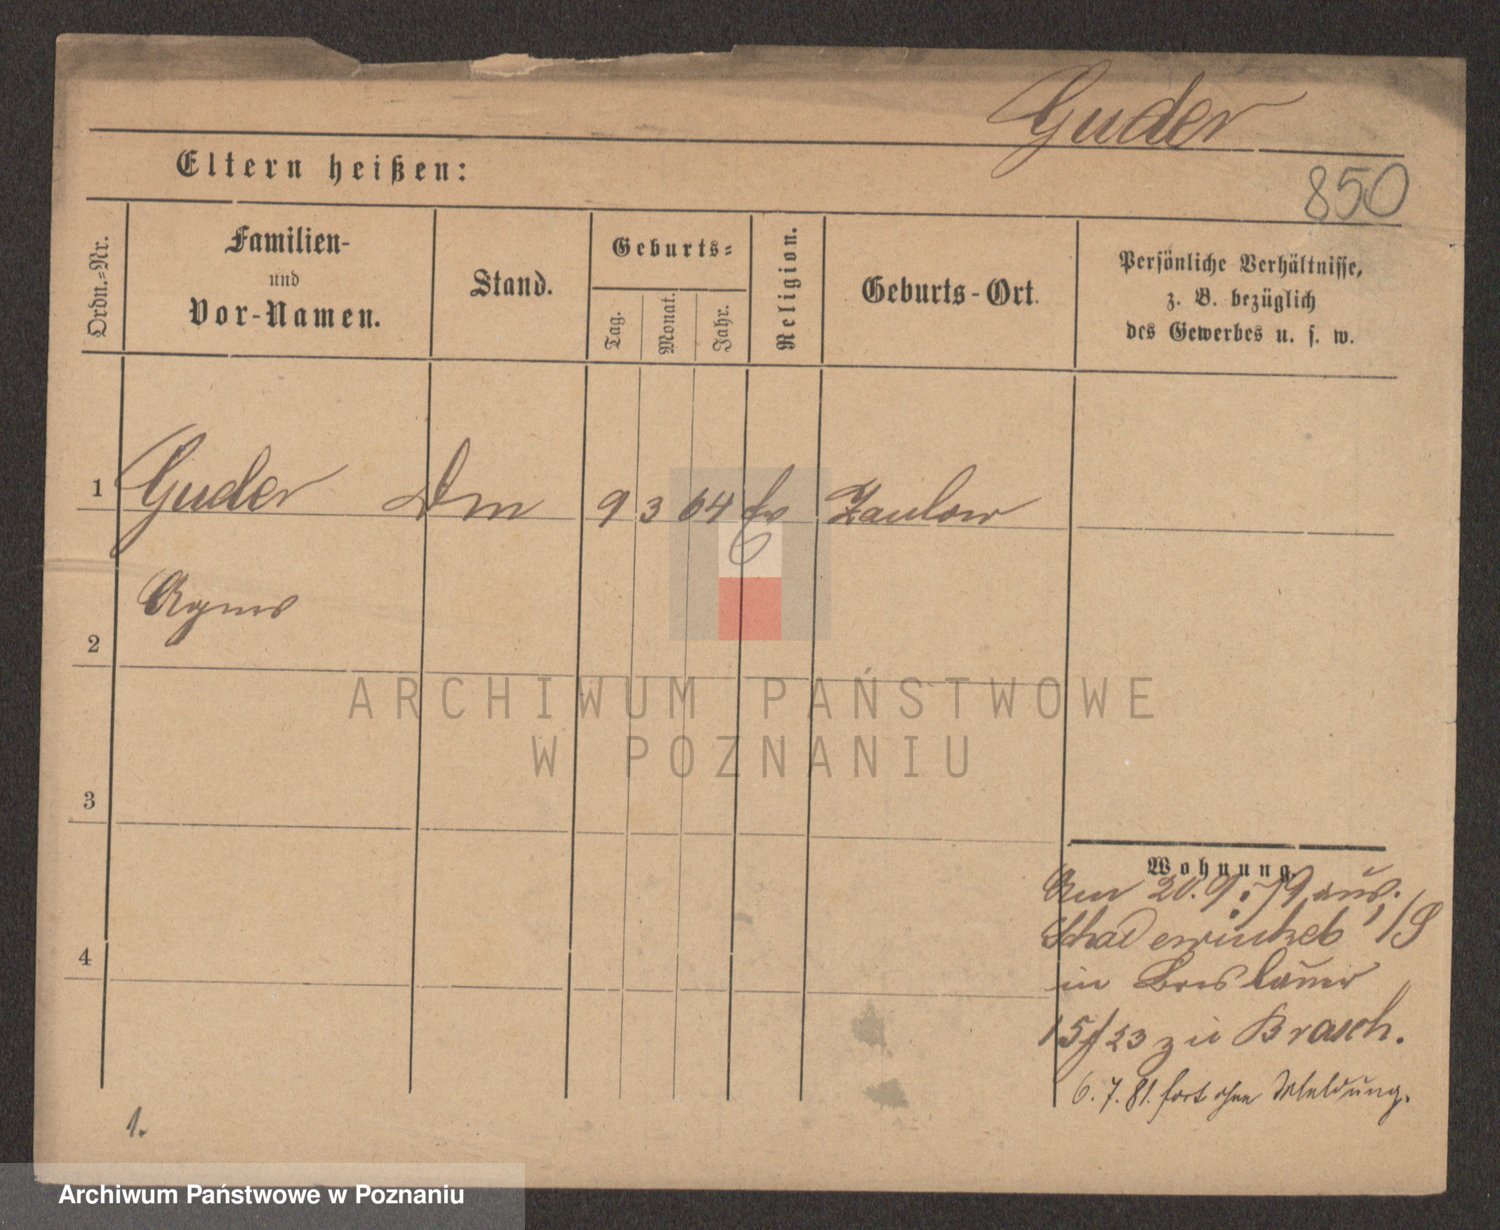 Guder
Eltern heißen:
850
Ordn.-Nr.
Familien-
und
Vor-Namen.
Stand.
Geburts-
Tag.
Monat.
Jahr.
Religion.
Geburts-Ort.
Persönliche Verhältnisse,
z. B. bezüglich
des Gewerbes u. s. w.
1 Guder Dm 9 3 64 Ev Zaulow
Agnes
2
ARCHIWUM PAŃSTWOWE
W POZNANIU
3
Wohnung.
20.9.79 aus
4
in Breslauer
15/23 zu Brasch.
6.7.81. fort ohne Meldung.
1.
Archiwum Państwowe w Poznaniu